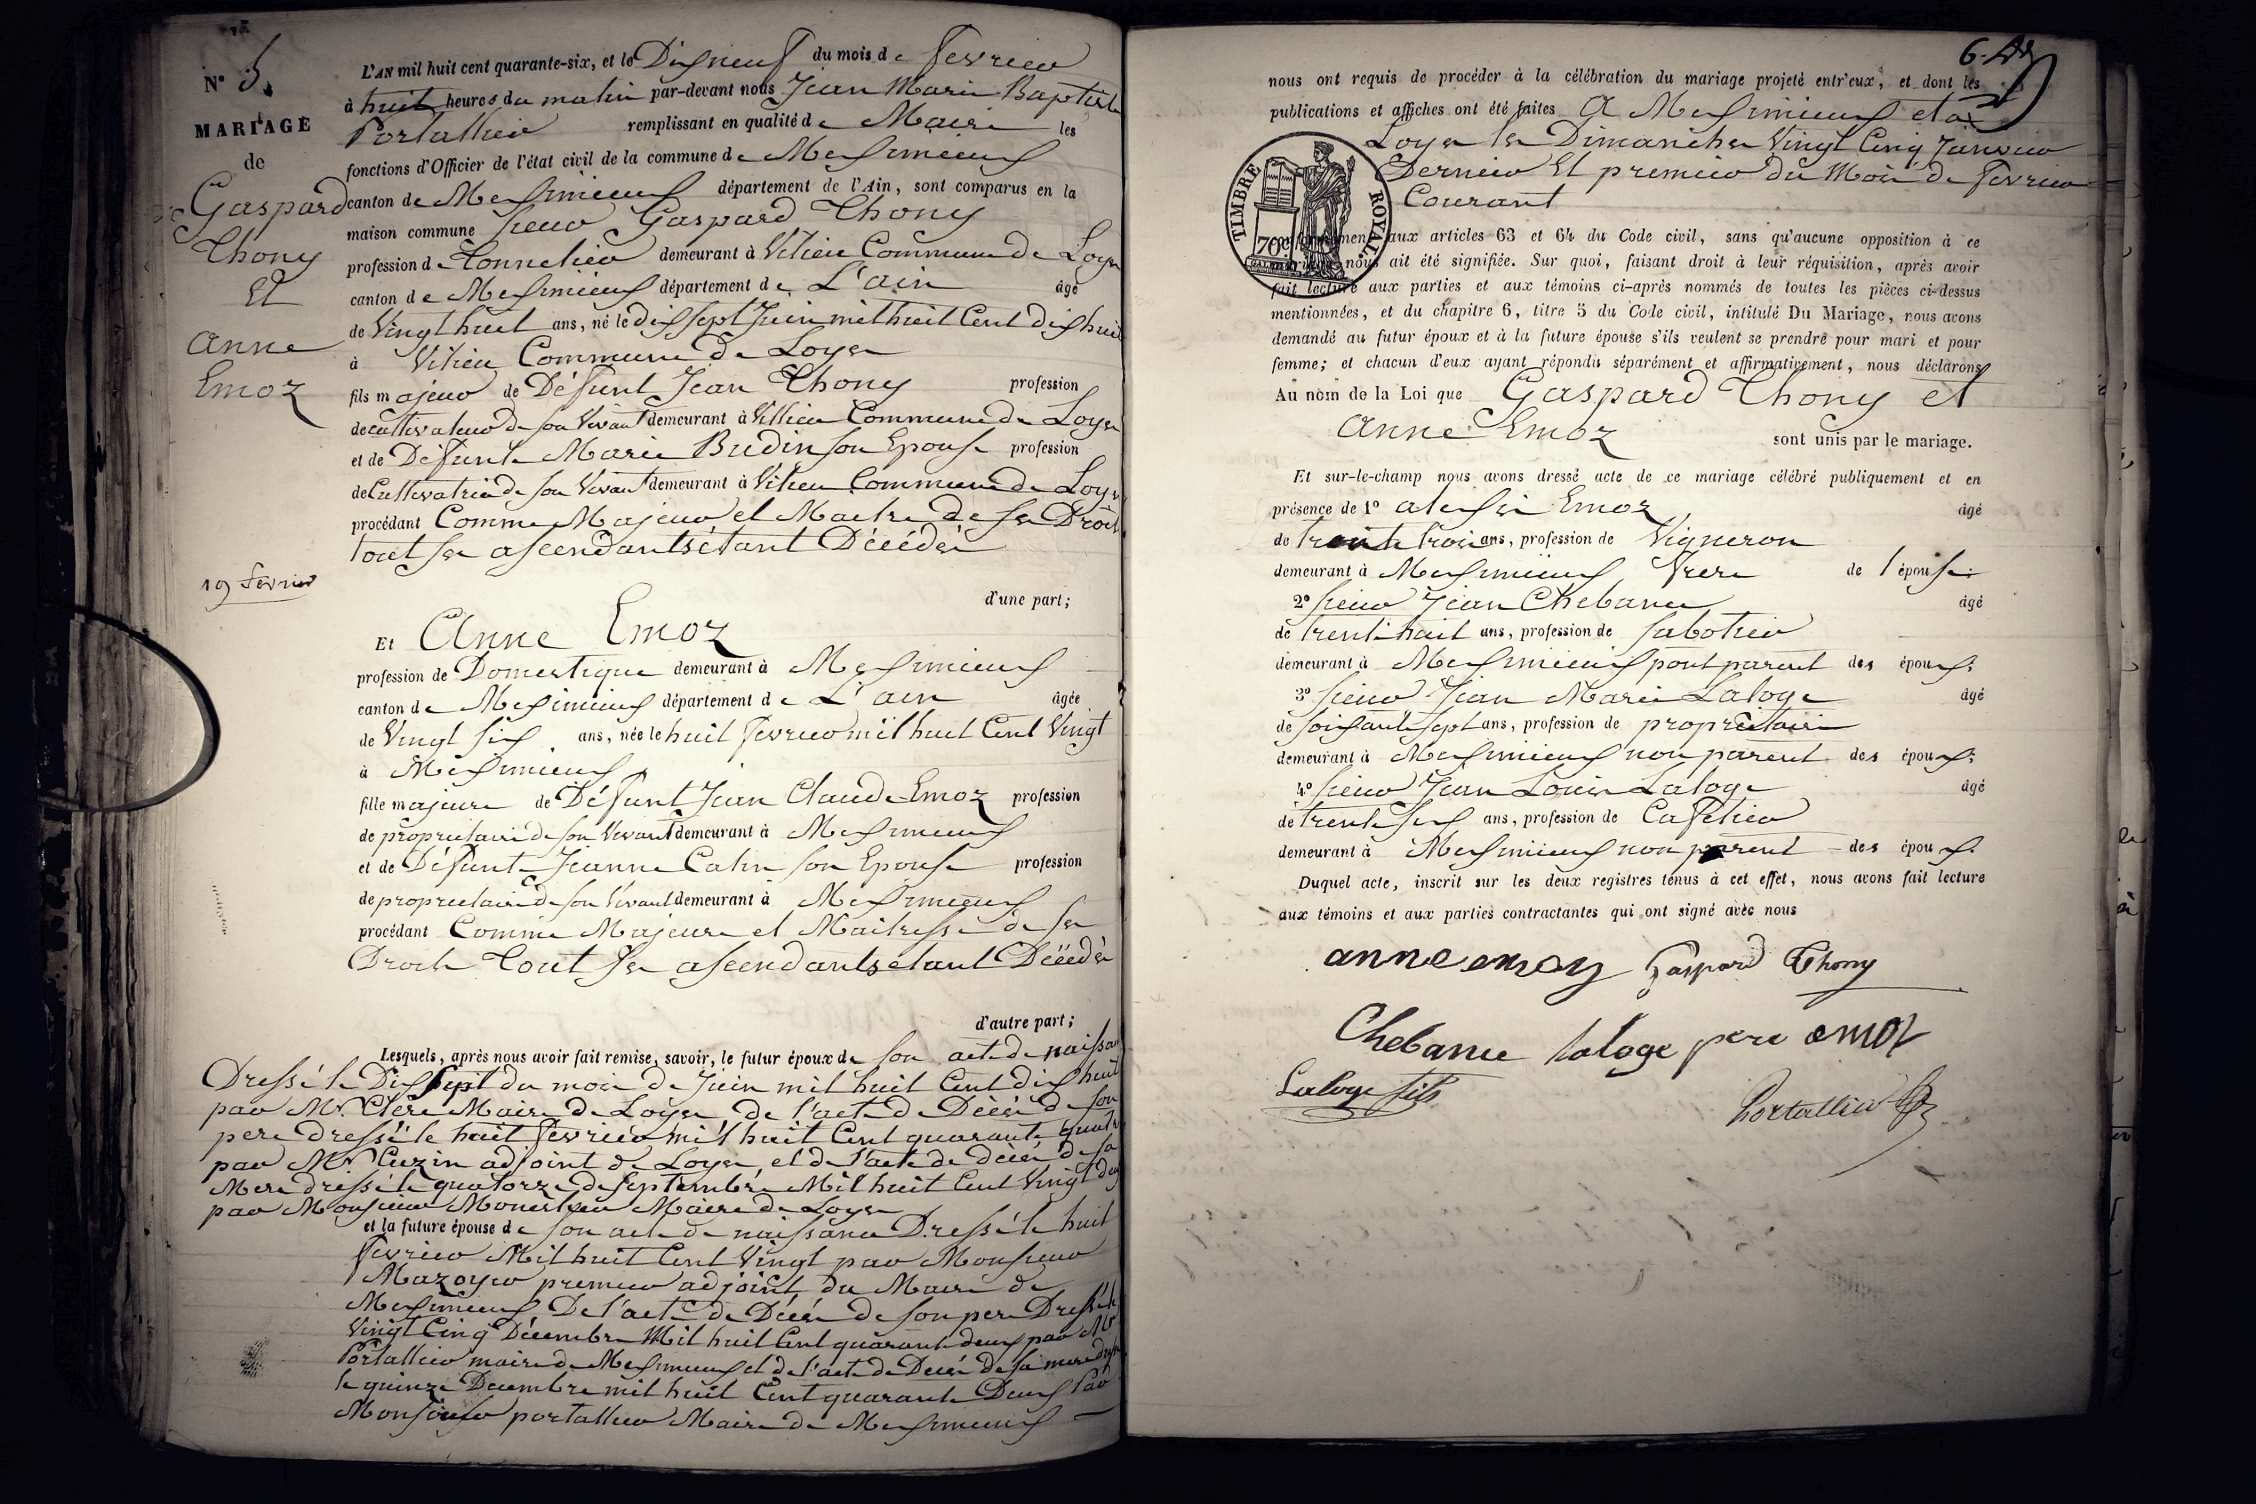 N° 5.
MARIAGE
de
Gaspard
Thony
Et
anne
Emoz
19 fevrier
L'AN mil huit cent quarante-six, et le Dix neuf du mois de fevrier
à huit heures du matin par-devant nous Jean Marie Baptiste
Portallier remplissant en qualité de Maire les
fonctions d'Officier de l'état civil de la commune de Meximieux
canton de Meximieux département de l'Ain, sont comparus en la
maison commune sieur Gaspard Thony
profession de Tonnelier demeurant à Vilieu Commune de Loyes
canton de Meximieux département de L'ain âgé
de Vingt huit ans, né le dix sept Juin mil huit Cent dix huit
à Vilieu Commune de Loyes
fils majeur de Défunt Jean Thony profession
de cultivateur de son Vivant demeurant à Villieu Commune de Loyes
et de Défunte Marie Budin son Epouse profession
de Cultivatrice de son Vivant demeurant à Vilieu Commune de Loyes
procédant Comme Majeur et Maitre de ses Droits
tout ses ascendants étant Décédés
d'une part;
Et Anne Emoz
profession de Domestique demeurant à Meximieux
canton de Meximieux département de L'ain âgée
de Vingt six ans, née le huit fevrier mil huit Cent Vingt
à Meximieux
fille majeure de Défunt Jean Claude Emoz profession
de proprietaire de son Vivant demeurant à Meximieux
et de Défunte Jeanne Catin son Epouse profession
de proprietaire de son Vivant demeurant à Meximieux
procédant Comme Majeure et Maitresse de ses
Droits Tout ses ascendants étant Décédés
d'autre part;
Lesquels, après nous avoir fait remise, savoir, le futur époux de son acte de naissance
Dressé le Dix sept du mois de Juin mil huit Cent dix huit
par Mr. Clére Maire de Loyes, de l'acte de Décés de son
pere dressé le huit fevrier mil huit Cent quarante quatre
par Mr. Cuzin adjoint de Loyes, et de l'acte de décés de sa
Mere dressé le quatorze de septembre Mil huit Cent Vingt deux
par Monsieur Maire de Loyes
et la future épouse de son acte de naissance Dressé le huit
fevrier Mil huit Cent Vingt par Monsieur
Mazoyer premier adjoint du Maire de
Meximieux De l'acte de Décés de son pere Dressé le
Vingt Cinq Décembre Mil huit Cent quarante deux par Mr
Portallier maire de Meximieux et de l'acte de Decés de sa mere dressé
le quinze Decembre mil huit Cent quarante Deux Par
Monsieur portallier Maire de Meximieux
nous ont requis de procéder à la célébration du mariage projeté entr'eux, et dont les
publications et affiches ont été faites A Meximieux et a
Loyes les Dimanches Vingt Cinq Janvier
Dernier Et premier du Mois de fevrier
Courant
TIMBRE ROYAL
70c
conformément aux articles 63 et 64 du Code civil, sans qu'aucune opposition à ce
mariage nous ait été signifiée. Sur quoi, faisant droit à leur réquisition, après avoir
fait lecture aux parties et aux témoins ci-après nommés de toutes les pièces ci-dessus
mentionnées, et du chapitre 6, titre 5 du Code civil, intitulé Du Mariage, nous avons
demandé au futur époux et à la future épouse s'ils veulent se prendre pour mari et pour
femme; et chacun d'eux ayant répondu séparément et affirmativement, nous déclarons
Au nom de la Loi que Gaspard Thony et
Anne Emoz sont unis par le mariage.
Et sur-le-champ nous avons dressé acte de ce mariage célébré publiquement et en
présence de 1° alexis Emoz âgé
de trente trois ans, profession de Vigneron
demeurant à Meximieux frere de l'épouse
2° sieur Jean Chebance âgé
de trent'huit ans, profession de sabotier
demeurant à Meximieux point parent des époux
3° sieur Jean Marie Laloge âgé
de soixante sept ans, profession de propriétaire
demeurant à Meximieux non parent des époux
4° sieur Jean Louis Laloge âgé
de trente six ans, profession de Cafetier
demeurant à Meximieux non parent des époux
Duquel acte, inscrit sur les deux registres tenus à cet effet, nous avons fait lecture
aux témoins et aux parties contractantes qui ont signé avec nous
anne emoz Gaspard Thony
Chebance laloge pere emoz
Laloge fils
Portallier